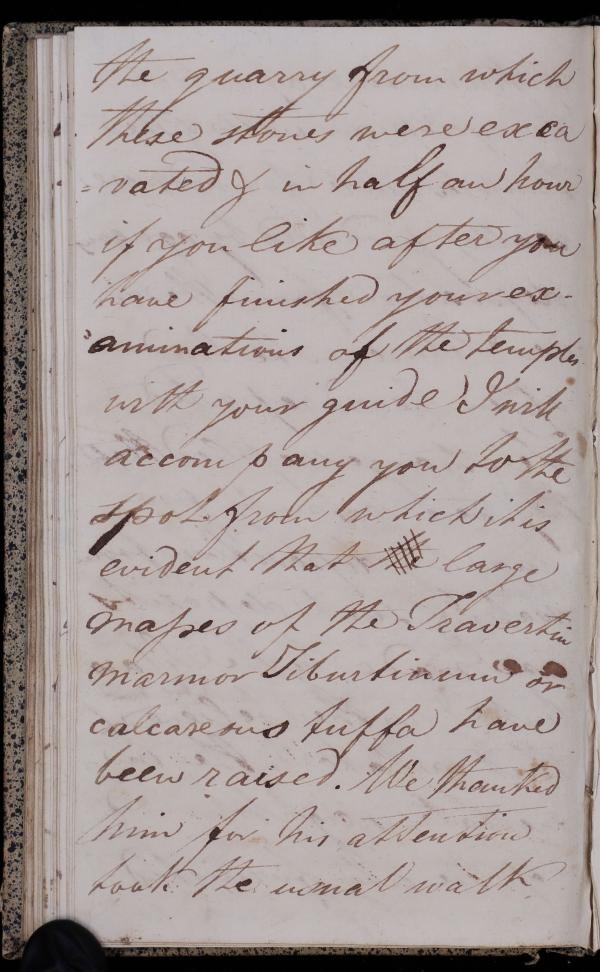 the quarry from which
these stones were exca
=vated & in half an hour
if you like after you
have finished your ex-
aminations of the temples
with your guide I will
accompany you to the
spot from which it is
evident that the large
masses of the Travertin
marmor Tiburtinum or
calcareous tuffa have
been raised. We thanked
him for his attention
took the usual walk